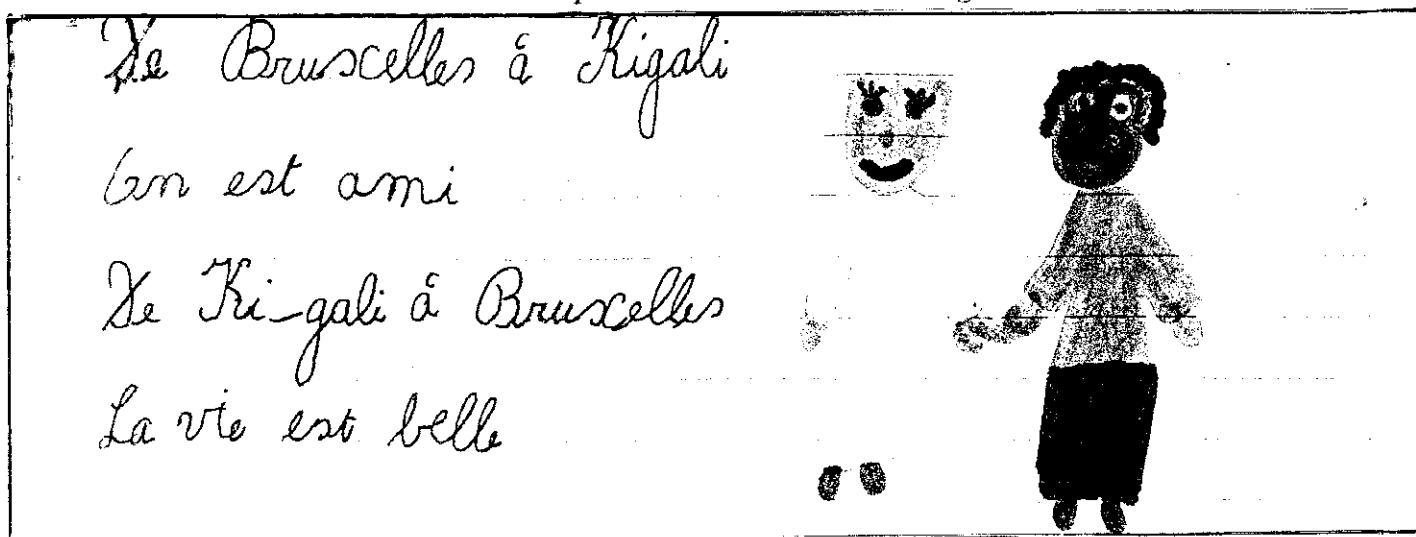 De Bruxcelles à Kigali
On est ami
De Ki-gali à Bruxcelles
La vie est belle